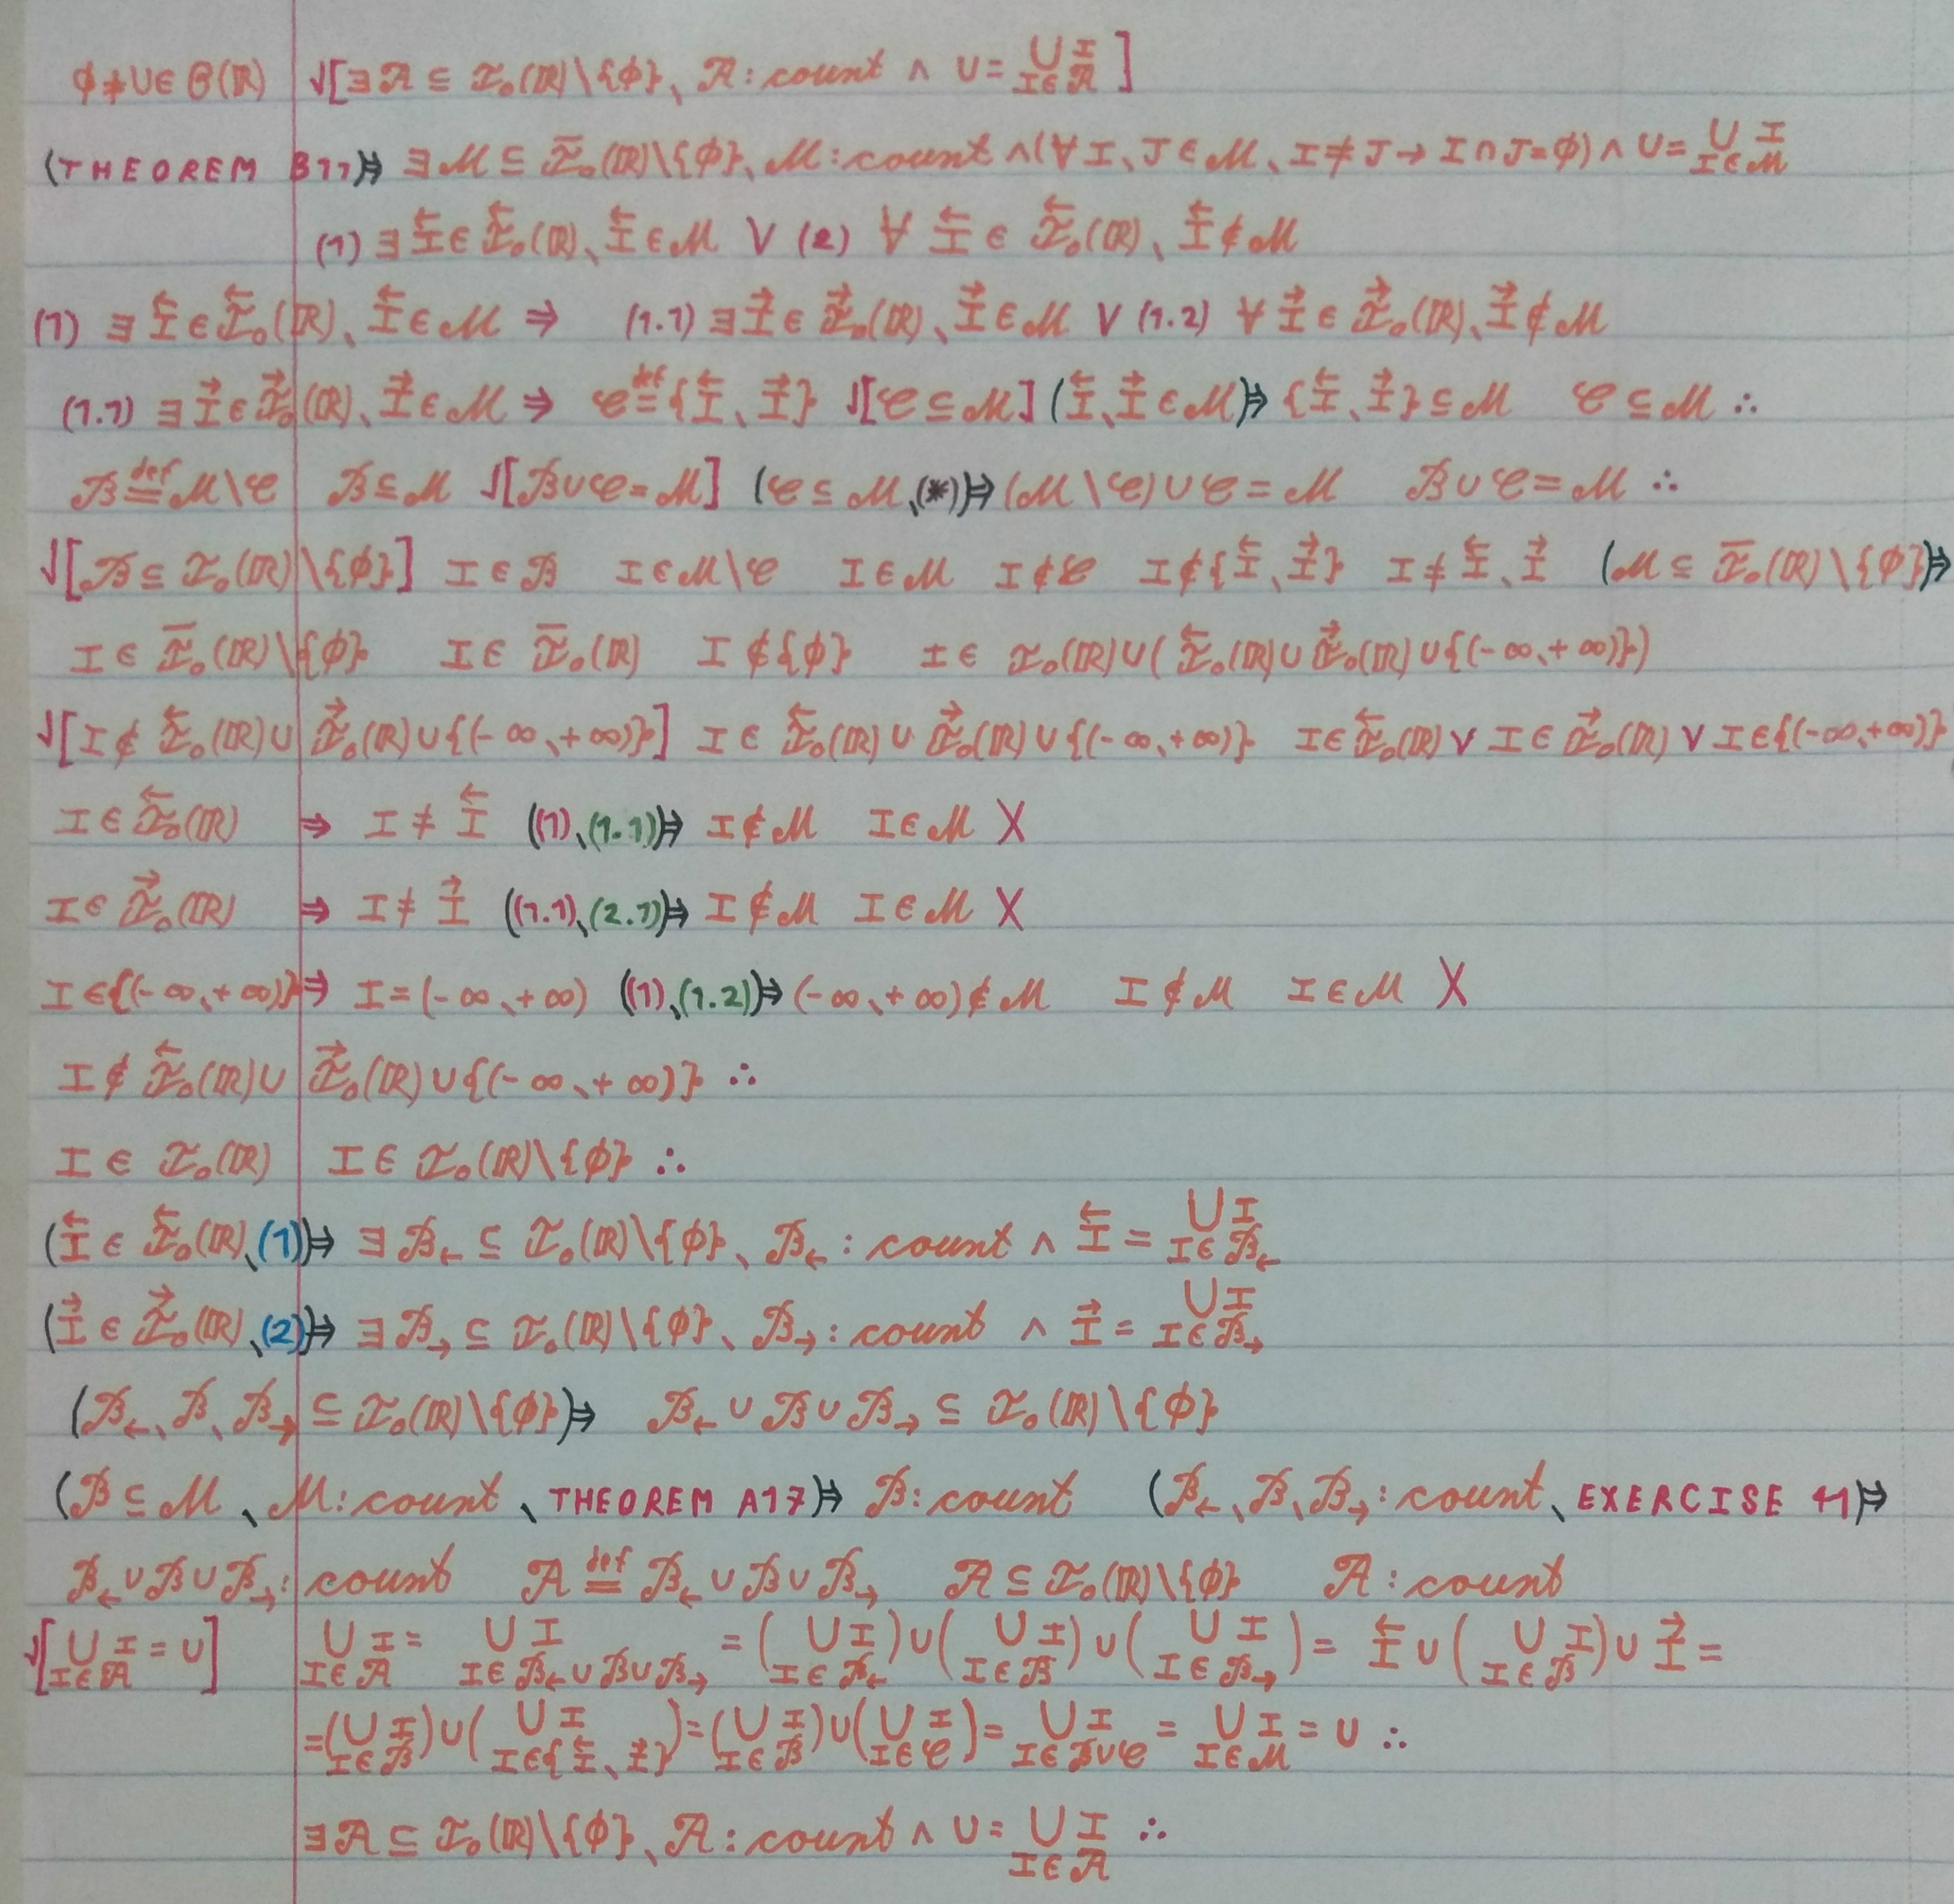 ϕ≠U∈Θ(ℝ) √[∃𝒜 ⊆ ℐ₀(ℝ)\{ϕ}、𝒜: count ∧ U = ⋃_{I∈𝒜} I]
(THEOREM B11)⇒ ∃ℳ ⊆ ℐ̅₀(ℝ)\{ϕ}、ℳ: count ∧ (∀I、J∈ℳ、I≠J → I∩J=ϕ) ∧ U = ⋃_{I∈ℳ} I
(1) ∃I⃖ ∈ ℐ⃖₀(ℝ)、I⃖ ∈ ℳ ∨ (2) ∀I⃖ ∈ ℐ⃖₀(ℝ)、I⃖ ∉ ℳ
(1) ∃I⃖ ∈ ℐ⃖₀(ℝ)、I⃖ ∈ ℳ ⇒ (1.1) ∃I⃗ ∈ ℐ⃗₀(ℝ)、I⃗ ∈ ℳ ∨ (1.2) ∀I⃗ ∈ ℐ⃗₀(ℝ)、I⃗ ∉ ℳ
(1.1) ∃I⃗ ∈ ℐ⃗₀(ℝ)、I⃗ ∈ ℳ ⇒ 𝒞 def= {I⃖、I⃗} √[𝒞 ⊆ ℳ] (I⃖、I⃗ ∈ ℳ)⇒ {I⃖、I⃗} ⊆ ℳ 𝒞 ⊆ ℳ ∴
ℬ def= ℳ\𝒞 ℬ ⊆ ℳ √[ℬ∪𝒞 = ℳ] (𝒞 ⊆ ℳ、(*))⇒ (ℳ\𝒞)∪𝒞 = ℳ ℬ∪𝒞 = ℳ ∴
√[ℬ ⊆ ℐ₀(ℝ)\{ϕ}] I∈ℬ I∈ℳ\𝒞 I∈ℳ I∉𝒞 I∉{I⃖、I⃗} I≠I⃖、I⃗ (ℳ ⊆ ℐ̅₀(ℝ)\{ϕ})⇒
I ∈ ℐ̅₀(ℝ)\{ϕ} I ∈ ℐ̅₀(ℝ) I ∉ {ϕ} I ∈ ℐ₀(ℝ)∪(ℐ⃖₀(ℝ)∪ℐ⃗₀(ℝ)∪{(-∞、+∞)})
√[I ∉ ℐ⃖₀(ℝ)∪ℐ⃗₀(ℝ)∪{(-∞、+∞)}] I ∈ ℐ⃖₀(ℝ)∪ℐ⃗₀(ℝ)∪{(-∞、+∞)} I∈ℐ⃖₀(ℝ) ∨ I∈ℐ⃗₀(ℝ) ∨ I∈{(-∞、+∞)}
I ∈ ℐ⃖₀(ℝ) ⇒ I ≠ I⃖ ((1)、(1.1))⇒ I∉ℳ I∈ℳ X
I ∈ ℐ⃗₀(ℝ) ⇒ I ≠ I⃗ ((1.1)、(2.1))⇒ I∉ℳ I∈ℳ X
I ∈ {(-∞、+∞)} ⇒ I = (-∞、+∞) ((1)、(1.2))⇒ (-∞、+∞) ∉ ℳ I∉ℳ I∈ℳ X
I ∉ ℐ⃖₀(ℝ)∪ℐ⃗₀(ℝ)∪{(-∞、+∞)} ∴
I ∈ ℐ₀(ℝ) I ∈ ℐ₀(ℝ)\{ϕ} ∴
(I⃖ ∈ ℐ⃖₀(ℝ)、(1))⇒ ∃ℬ← ⊆ ℐ₀(ℝ)\{ϕ}、ℬ←: count ∧ I⃖ = ⋃_{I∈ℬ←} I
(I⃗ ∈ ℐ⃗₀(ℝ)、(2))⇒ ∃ℬ→ ⊆ ℐ₀(ℝ)\{ϕ}、ℬ→: count ∧ I⃗ = ⋃_{I∈ℬ→} I
(ℬ←、ℬ、ℬ→ ⊆ ℐ₀(ℝ)\{ϕ})⇒ ℬ←∪ℬ∪ℬ→ ⊆ ℐ₀(ℝ)\{ϕ}
(ℬ ⊆ ℳ、ℳ: count、THEOREM A17)⇒ ℬ: count (ℬ←、ℬ、ℬ→: count、EXERCISE 41)⇒
ℬ←∪ℬ∪ℬ→: count 𝒜 def= ℬ←∪ℬ∪ℬ→ 𝒜 ⊆ ℐ₀(ℝ)\{ϕ} 𝒜: count
√[⋃_{I∈𝒜} I = U] ⋃_{I∈𝒜} I = ⋃_{I∈ℬ←∪ℬ∪ℬ→} I = (⋃_{I∈ℬ←} I)∪(⋃_{I∈ℬ} I)∪(⋃_{I∈ℬ→} I) = I⃖∪(⋃_{I∈ℬ} I)∪I⃗ =
=(⋃_{I∈ℬ} I)∪(⋃_{I∈{I⃖、I⃗}} I)=(⋃_{I∈ℬ} I)∪(⋃_{I∈𝒞} I)= ⋃_{I∈ℬ∪𝒞} I = ⋃_{I∈ℳ} I = U ∴
∃𝒜 ⊆ ℐ₀(ℝ)\{ϕ}、𝒜: count ∧ U = ⋃_{I∈𝒜} I ∴